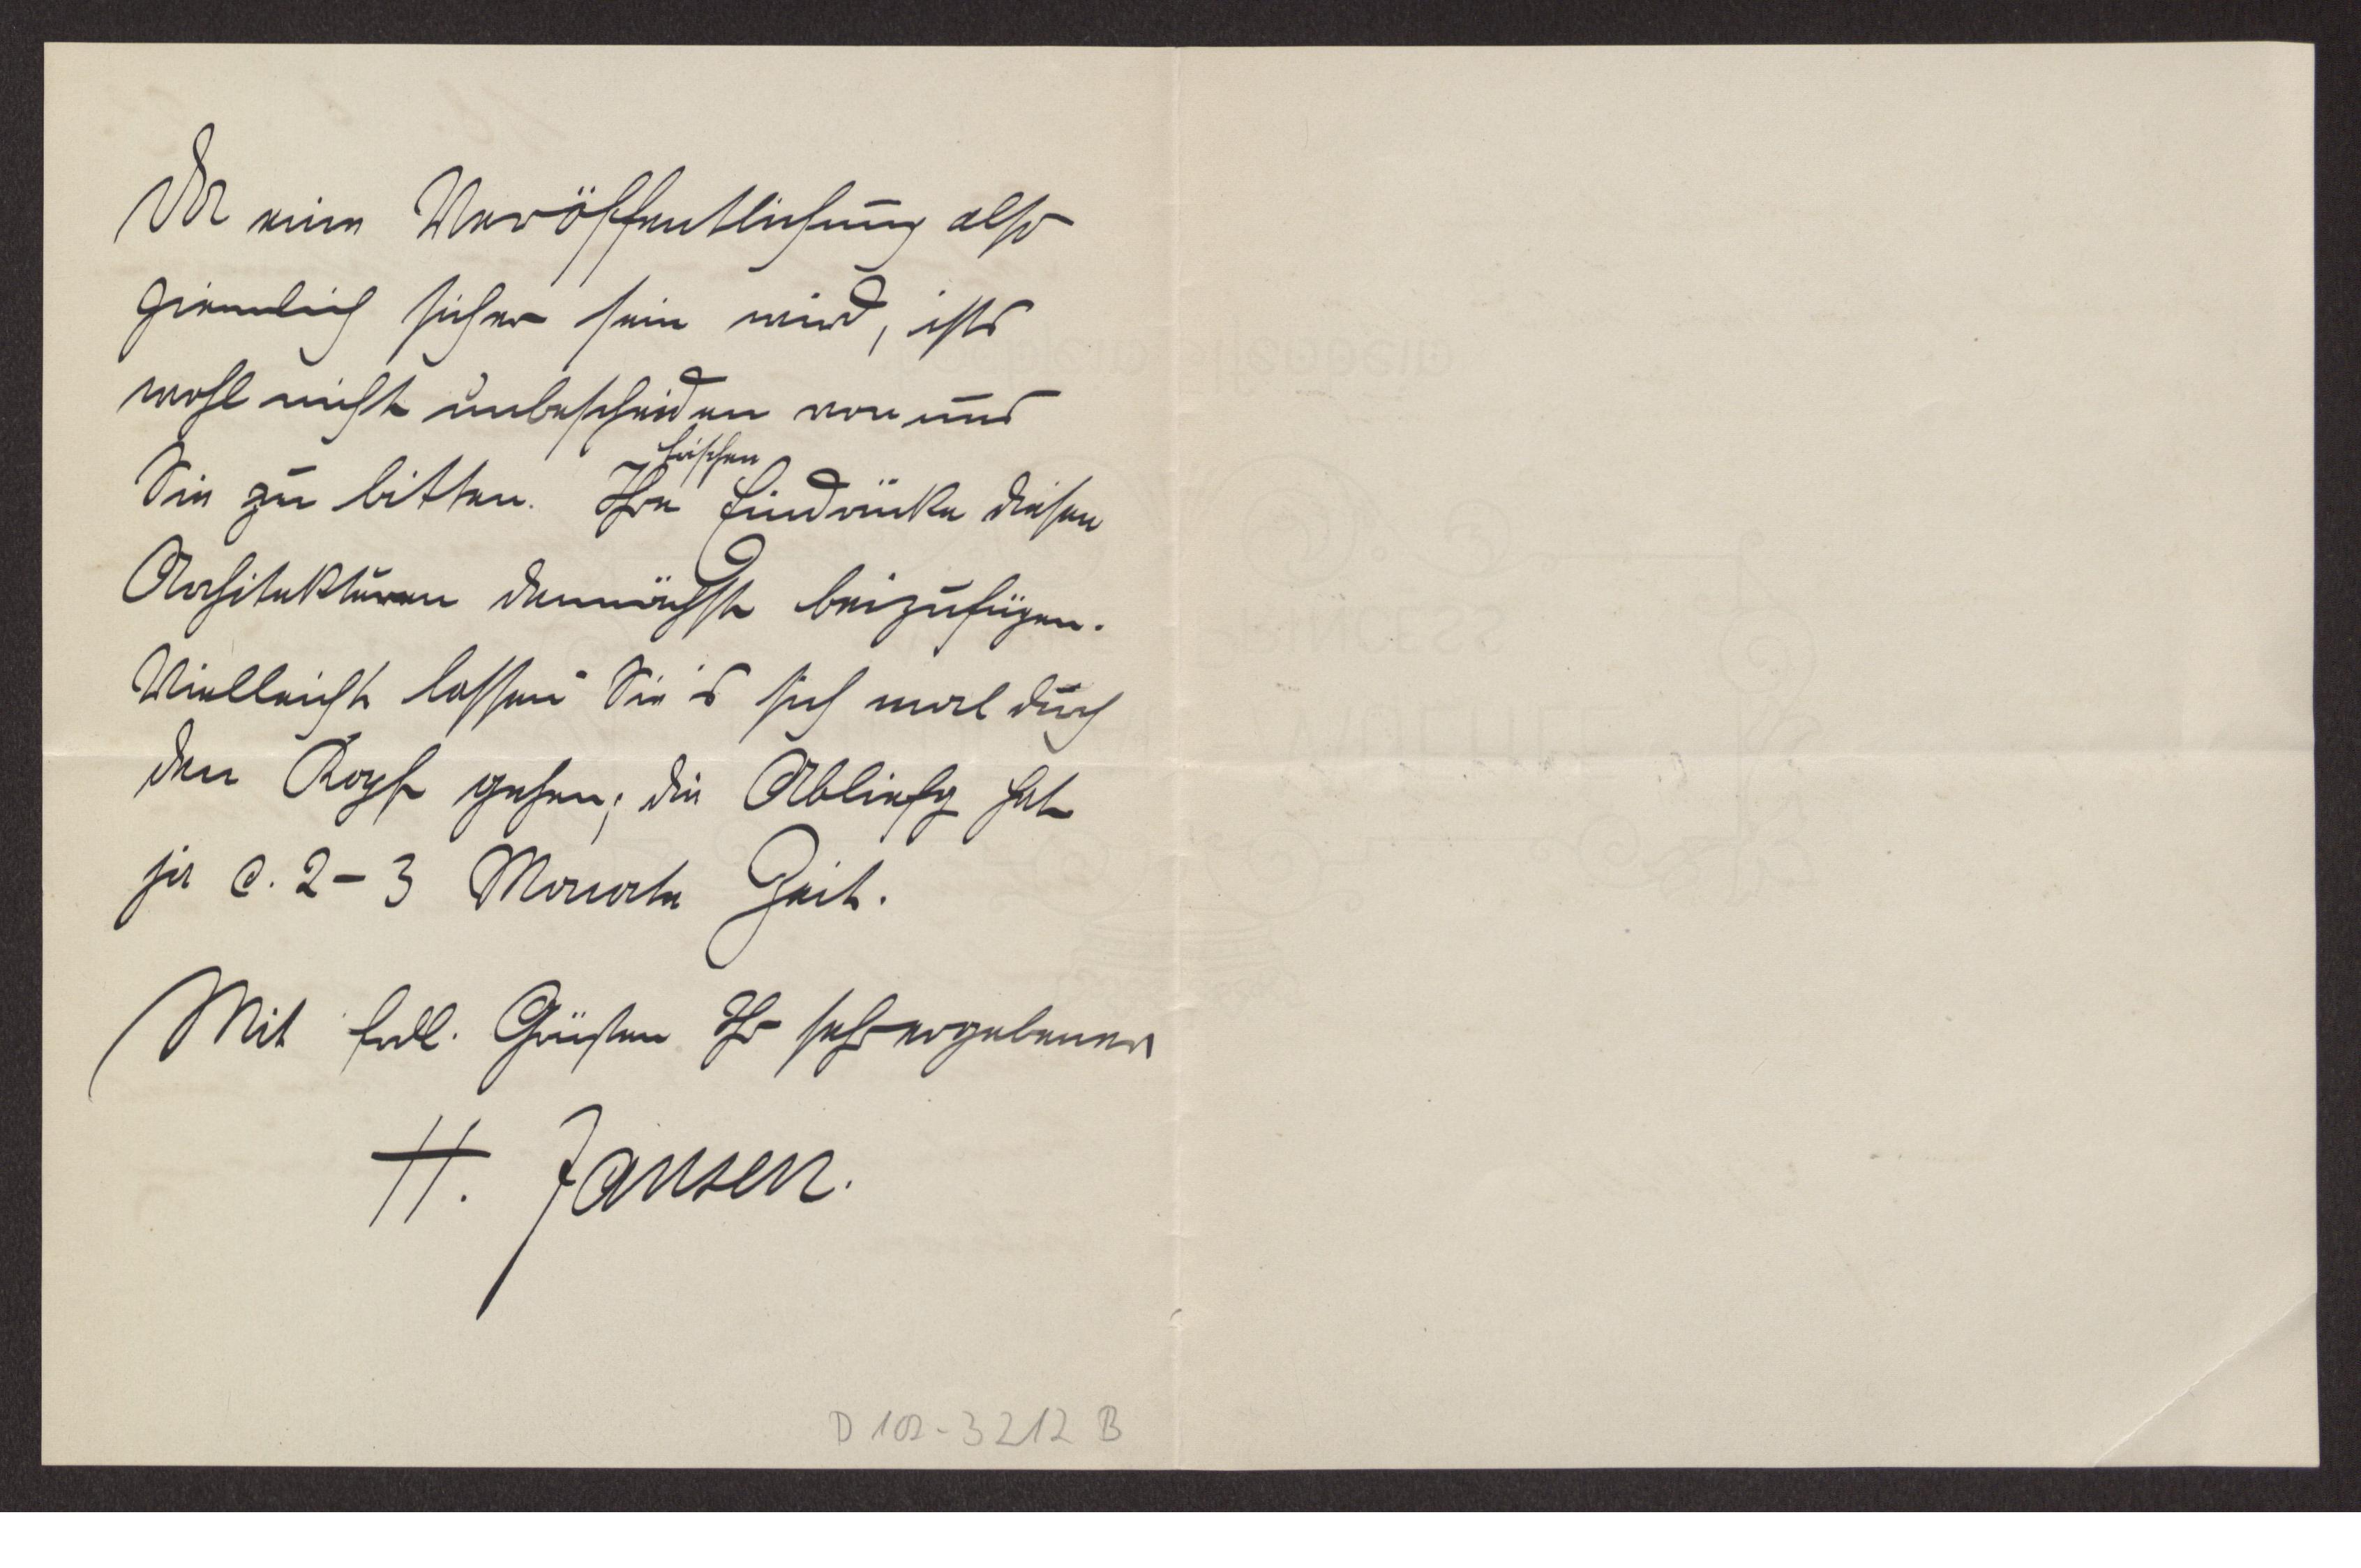 Da eine Veröffentlichung also
ziemlich sicher sein wird, ists
wohl nicht unbescheiden von uns
Sie zu bitten. Ihre frischen Eindrücke diesen
Architekturen demnächst beizufügen.
Vielleicht lassen Sie's sich mal durch
den Kopf gehen; die Abliefg hat
ja c. 2-3 Monate Zeit.
Mit frdl. Grüßen Ihr sehr ergebener
H. Jansen.
D 102-3212 B